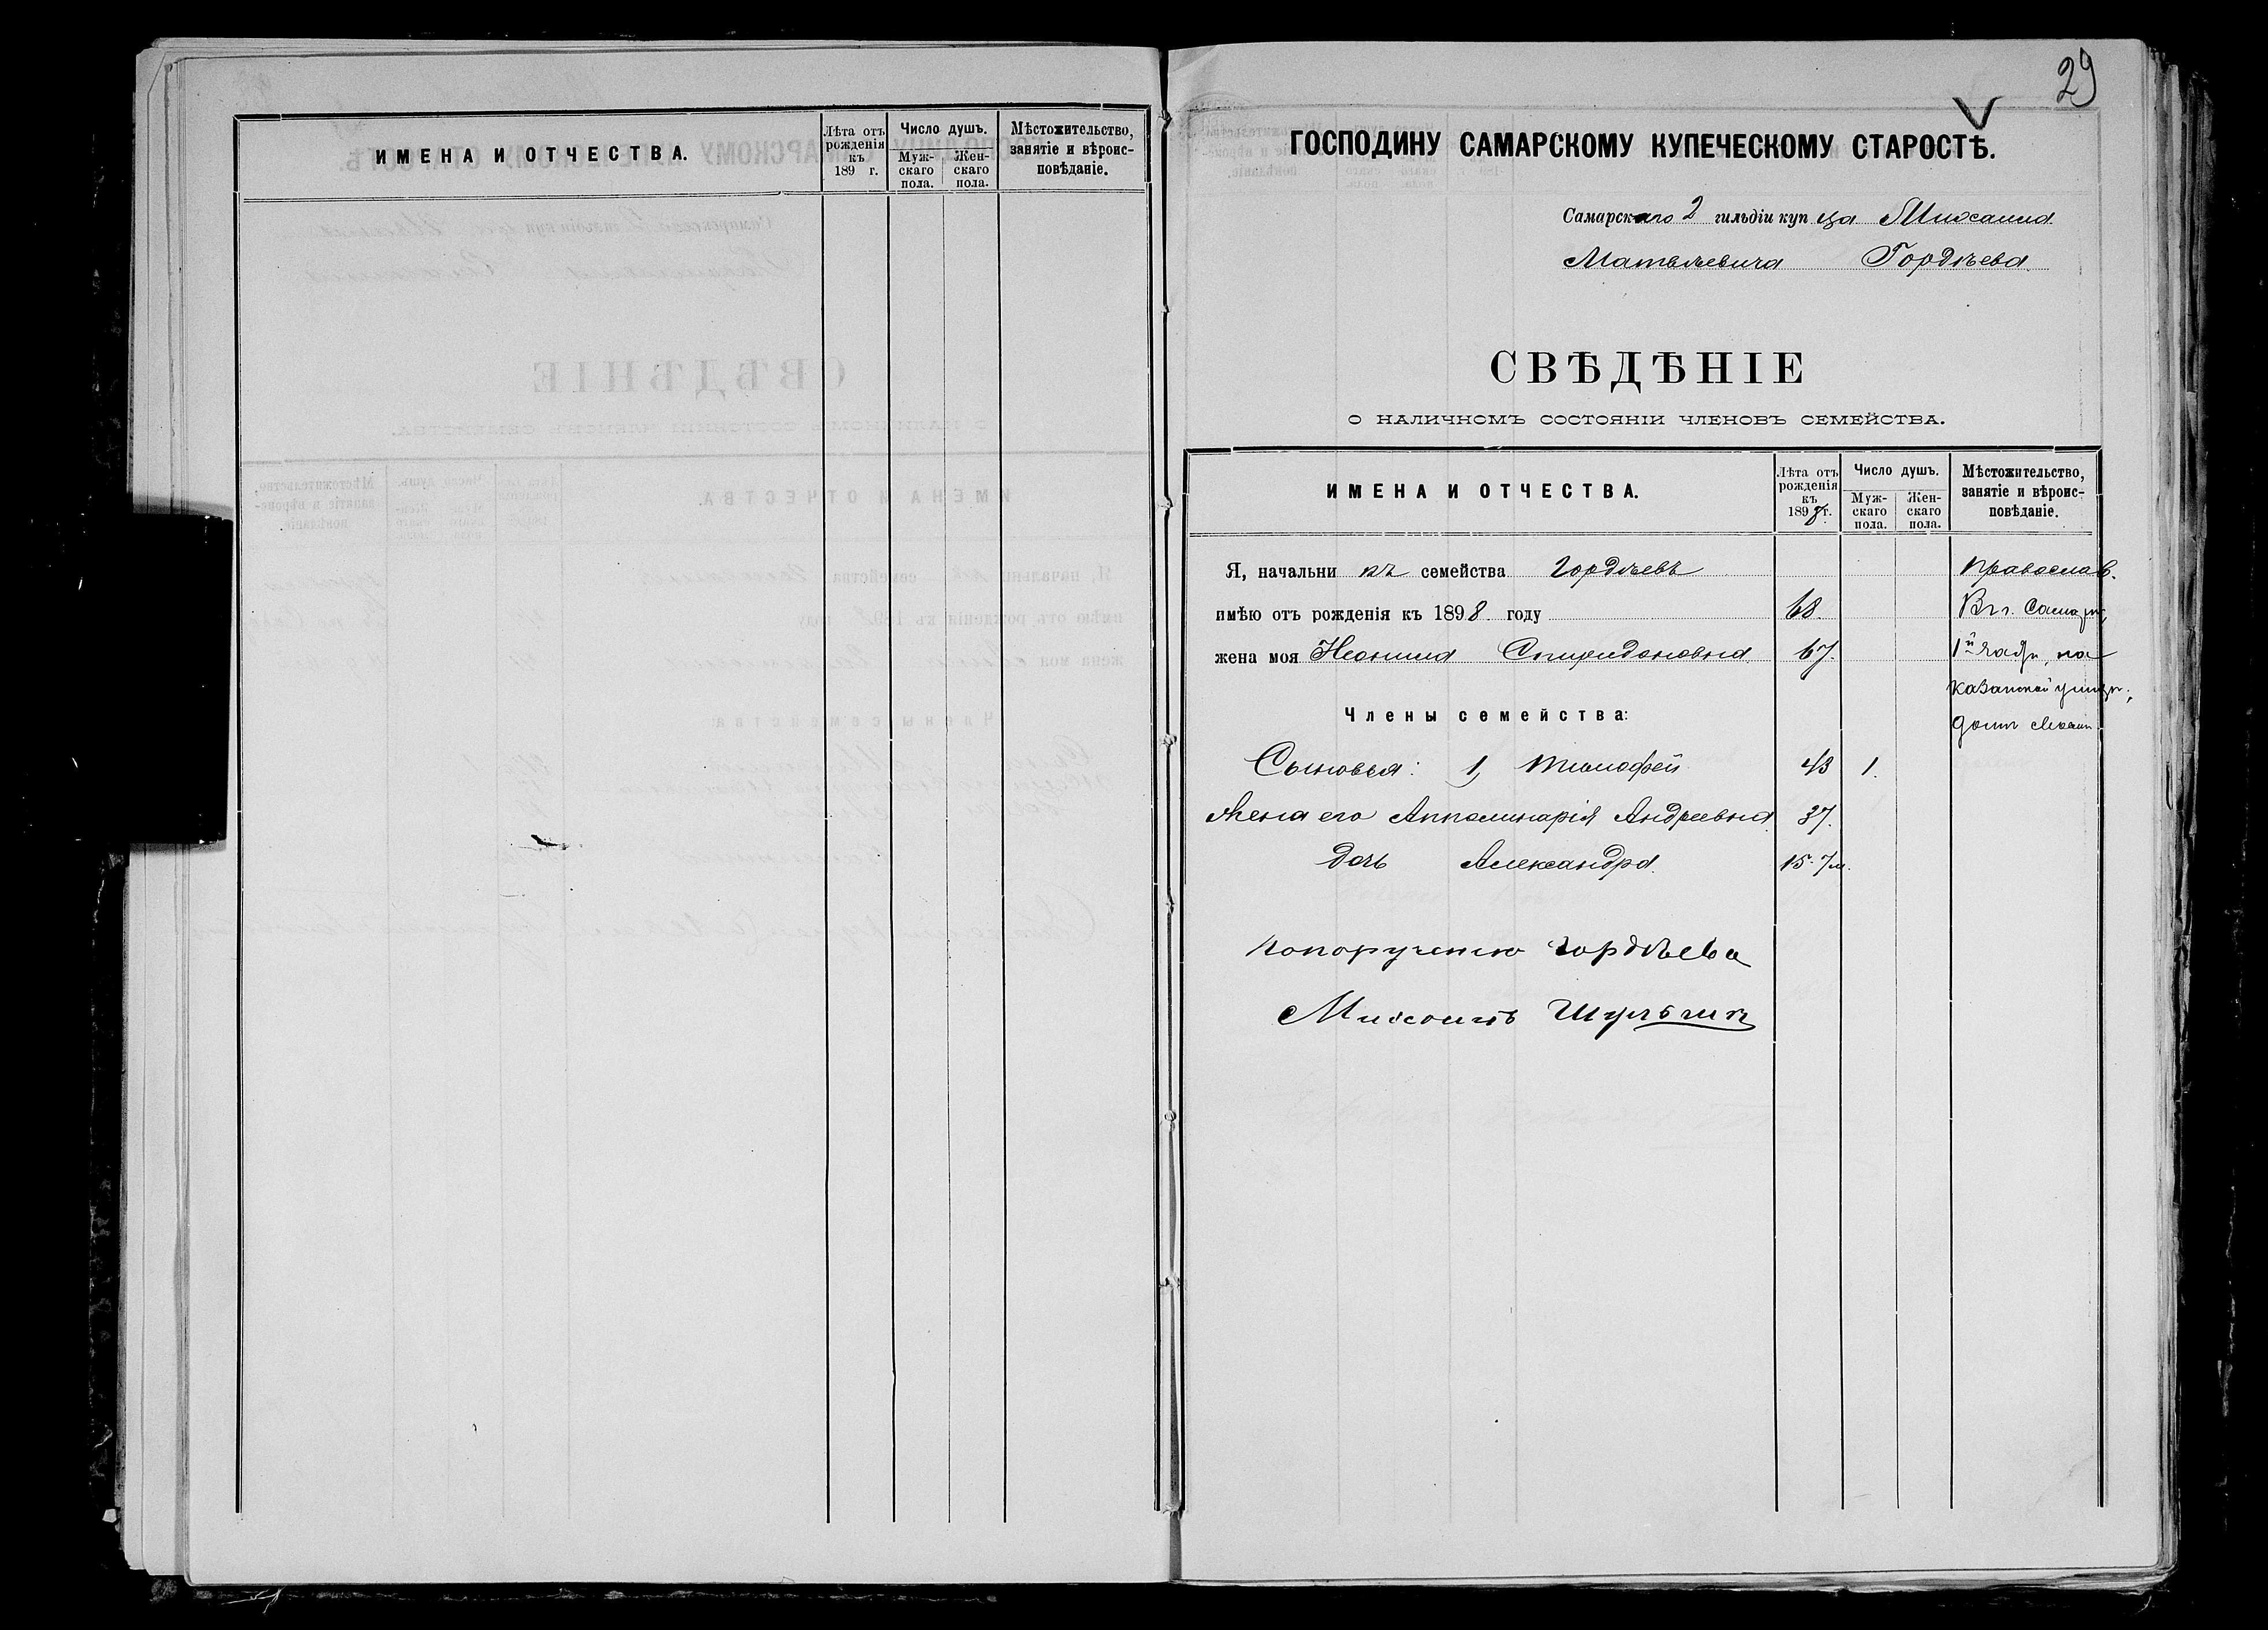 ИМЕНА И ОТЧЕСТВА.
Лѣта отъ рожденія къ 189 г.
Число душъ.
Муж-скаго пола.
Жен-скаго пола.
Мѣстожительство, занятіе и вѣроис-повѣданіе.
29
ГОСПОДИНУ САМАРСКОМУ КУПЕЧЕСКОМУ СТАРОСТѢ.
Самарскаго 2 гильдіи купца Михаила
Матвѣевича Гордѣева.
СВѢДѢНІЕ
О НАЛИЧНОМЪ СОСТОЯНІИ ЧЛЕНОВЪ СЕМЕЙСТВА.
ИМЕНА И ОТЧЕСТВА.
Лѣта отъ рожденія къ 1898 г.
Число душъ.
Муж-скаго пола.
Жен-скаго пола.
Мѣстожительство, занятіе и вѣроис-повѣданіе.
Я, начальникъ семейства Гордѣевъ православ.
имѣю отъ рожденія къ 1898 году 68. Въ г. Самарѣ,
жена моя Неонила Спиридоновна 67. 1й части, на
Казанской улицѣ,
Члены семейства:
домъ
Сыновья: 1, Тимофей 43 1.
Жена его Апполинарія Андреевна 37.
дочь Александра. 15. 7м.
По порученію Гордѣева
Михаилъ